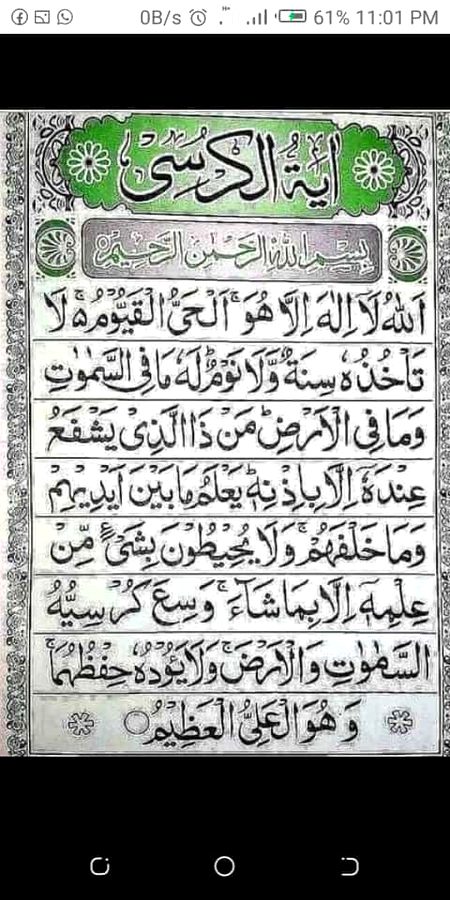 0B/s 61% 11:01 PM
اية الكرسى
بِسْمِ اللهِ الرَّحْمٰنِ الرَّحِيْمِ
اَللهُ لَآ اِلٰهَ اِلَّا هُوَ ۚ اَلْحَىُّ الْقَيُّوْمُ ۵ۚ لَا
تَاْخُذُهٗ سِنَةٌ وَّلَا نَوْمٌ ؕ لَهٗ مَا فِى السَّمٰوٰتِ
وَمَا فِى الْاَرْضِ ؕ مَنْ ذَا الَّذِىْ يَشْفَعُ
عِنْدَهٗۤ اِلَّا بِاِذْنِهٖ ؕ يَعْلَمُ مَا بَيْنَ اَيْدِيْهِمْ
وَمَا خَلْفَهُمْ ۚ وَلَا يُحِيْطُوْنَ بِشَىْءٍ مِّنْ
عِلْمِهٖۤ اِلَّا بِمَا شَآءَ ۚ وَسِعَ كُرْسِيُّهُ
السَّمٰوٰتِ وَالْاَرْضَ ۚ وَلَا يَئُوْدُهٗ حِفْظُهُمَا ۚ
وَهُوَ الْعَلِىُّ الْعَظِيْمُ ○